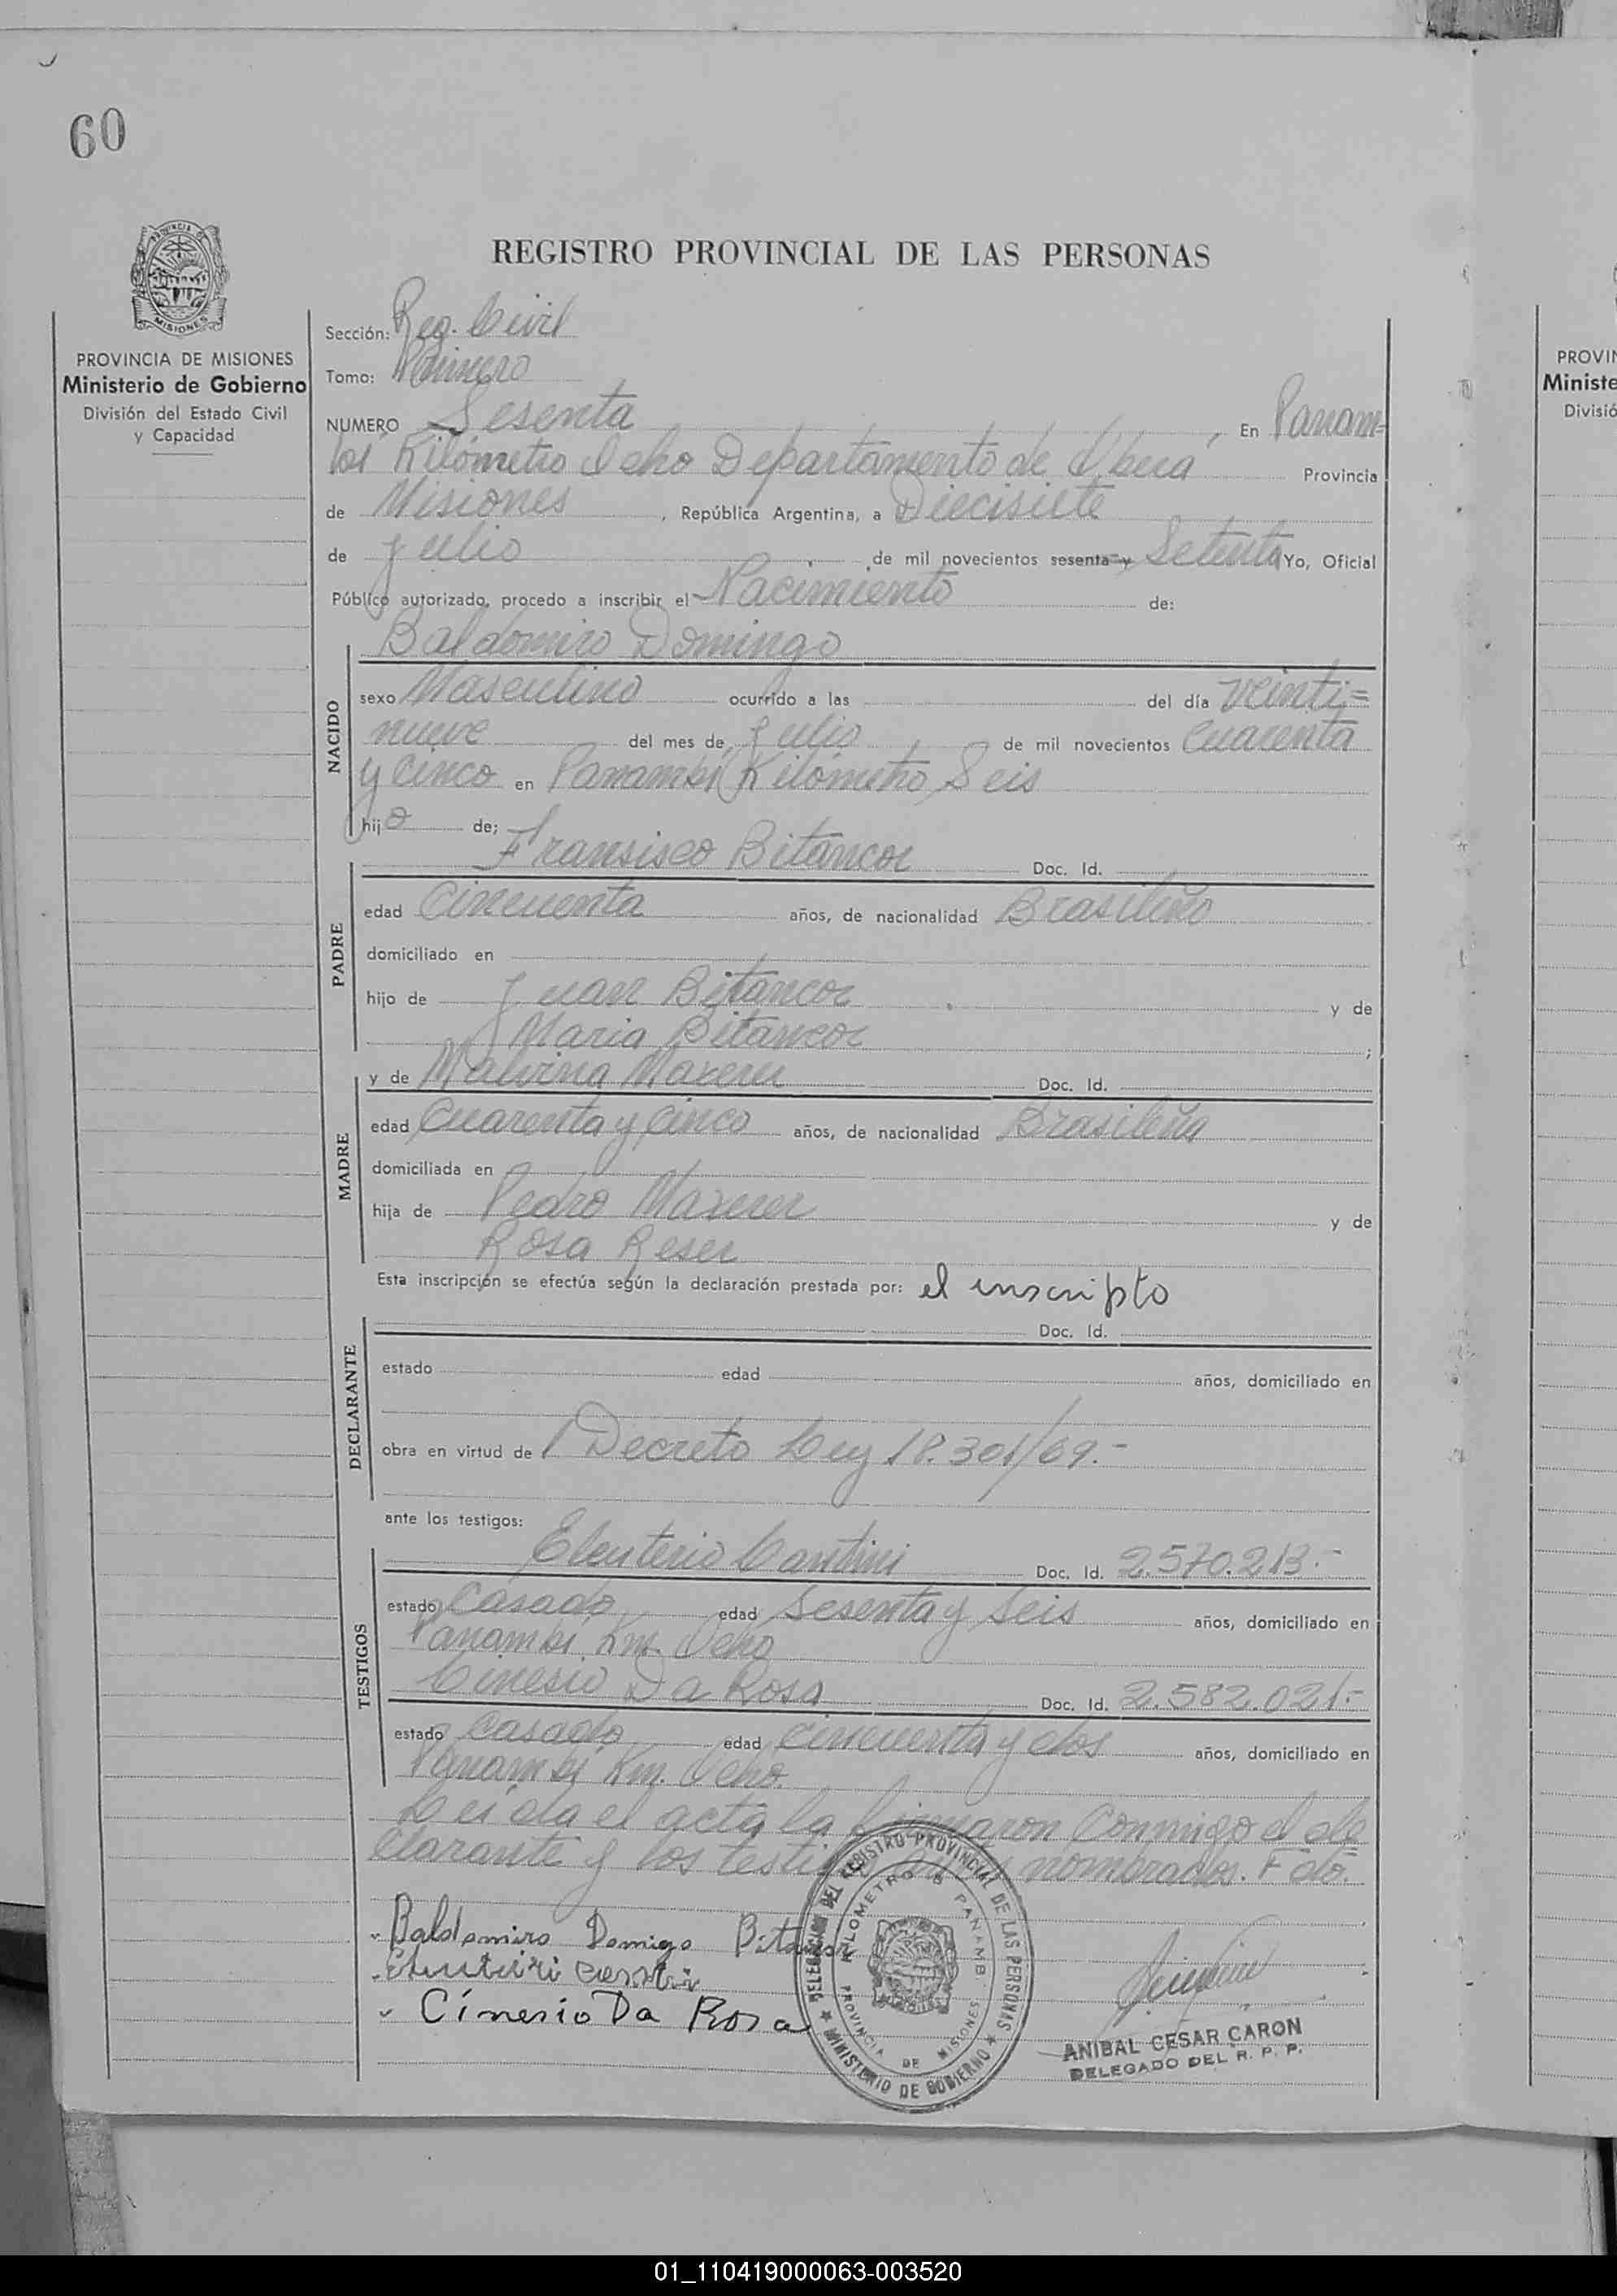 60
REGISTRO PROVINCIAL DE LAS PERSONAS
PROVINCIA DE
MISIONES
PROVINCIA DE MISIONES
Ministerio de Gobierno
División del Estado Civil
y Capacidad
Sección: Reg. Civil
Tomo: Primero
NUMERO Sesenta, En Panam=
bí Kilómetro Ocho Departamento de Oberá Provincia
de Misiones, República Argentina, a Diecisiete
de Julio de mil novecientos sesenta y Setenta Yo, Oficial
Público autorizado, procedo a inscribir el Nacimiento de:
Baldomiro Domingo
NACIDO
sexo Masculino ocurrido a las del día Veinti=
nueve del mes de Julio de mil novecientos Cuarenta
y Cinco en Panambí Kilómetro Seis
hijo de;
Fransisco Bitancor Doc. Id.
PADRE
edad Cincuenta años, de nacionalidad Brasileño
domiciliado en
hijo de Juan Bitancor y de
Maria Bitancor ;
y de Malvina Doc. Id.
MADRE
edad Cuarenta y Cinco años, de nacionalidad Brasileña
domiciliada en
hija de Pedro y de
Rosa Reser
Esta inscripción se efectúa según la declaración prestada por: el inscripto
DECLARANTE
Doc. Id.
estado edad años, domiciliado en
obra en virtud de Decreto Ley 18.301/69.-
ante los testigos:
TESTIGOS
Eleuterio Doc. Id. 2.570.213.-
estado Casado edad Sesenta y Seis años, domiciliado en
Panambí Km. Ocho
Cinesio Da Rosa Doc. Id. 2.582.021.-
estado Casado edad Cincuenta y dos años, domiciliado en
Panambí Km. Ocho.
Leida el acta la firmaron Conmigo el de
clarante y los testigos nombrados. Fdo.
Baldomiro Domigo Bitancor
Cinesio Da Rosa
DELEGACION DEL REGISTRO PROVINCIAL DE LAS PERSONAS
MINISTERIO DE GOBIERNO
KILOMETRO 8 PANAMBI
PROVINCIA DE MISIONES
ANIBAL CESAR CARON
DELEGADO DEL R. P. P.
PROVIN
Ministe
Divisió
01_110419000063-003520